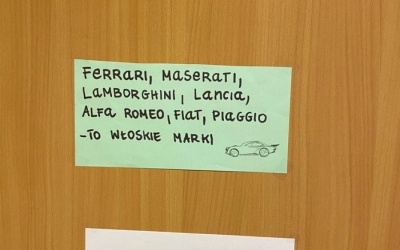 Ferrari, Maserati,
Lamborghini, Lancia,
Alfa Romeo, Fiat, Piaggio
-to włoskie marki